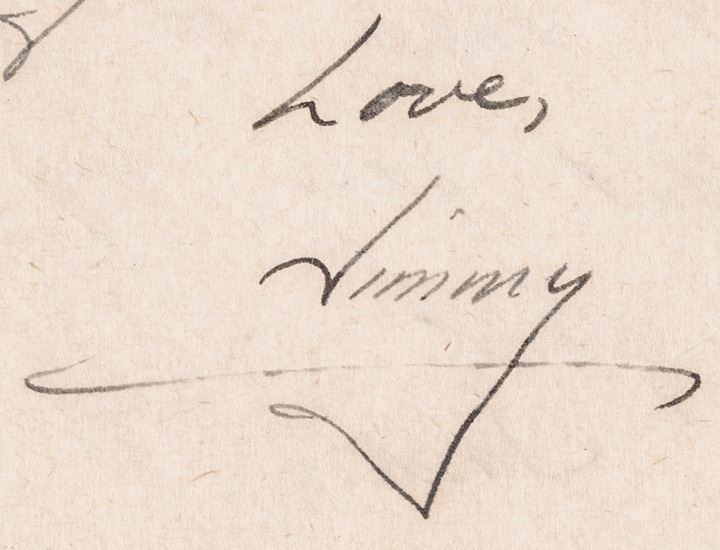 Love,
Jimmy